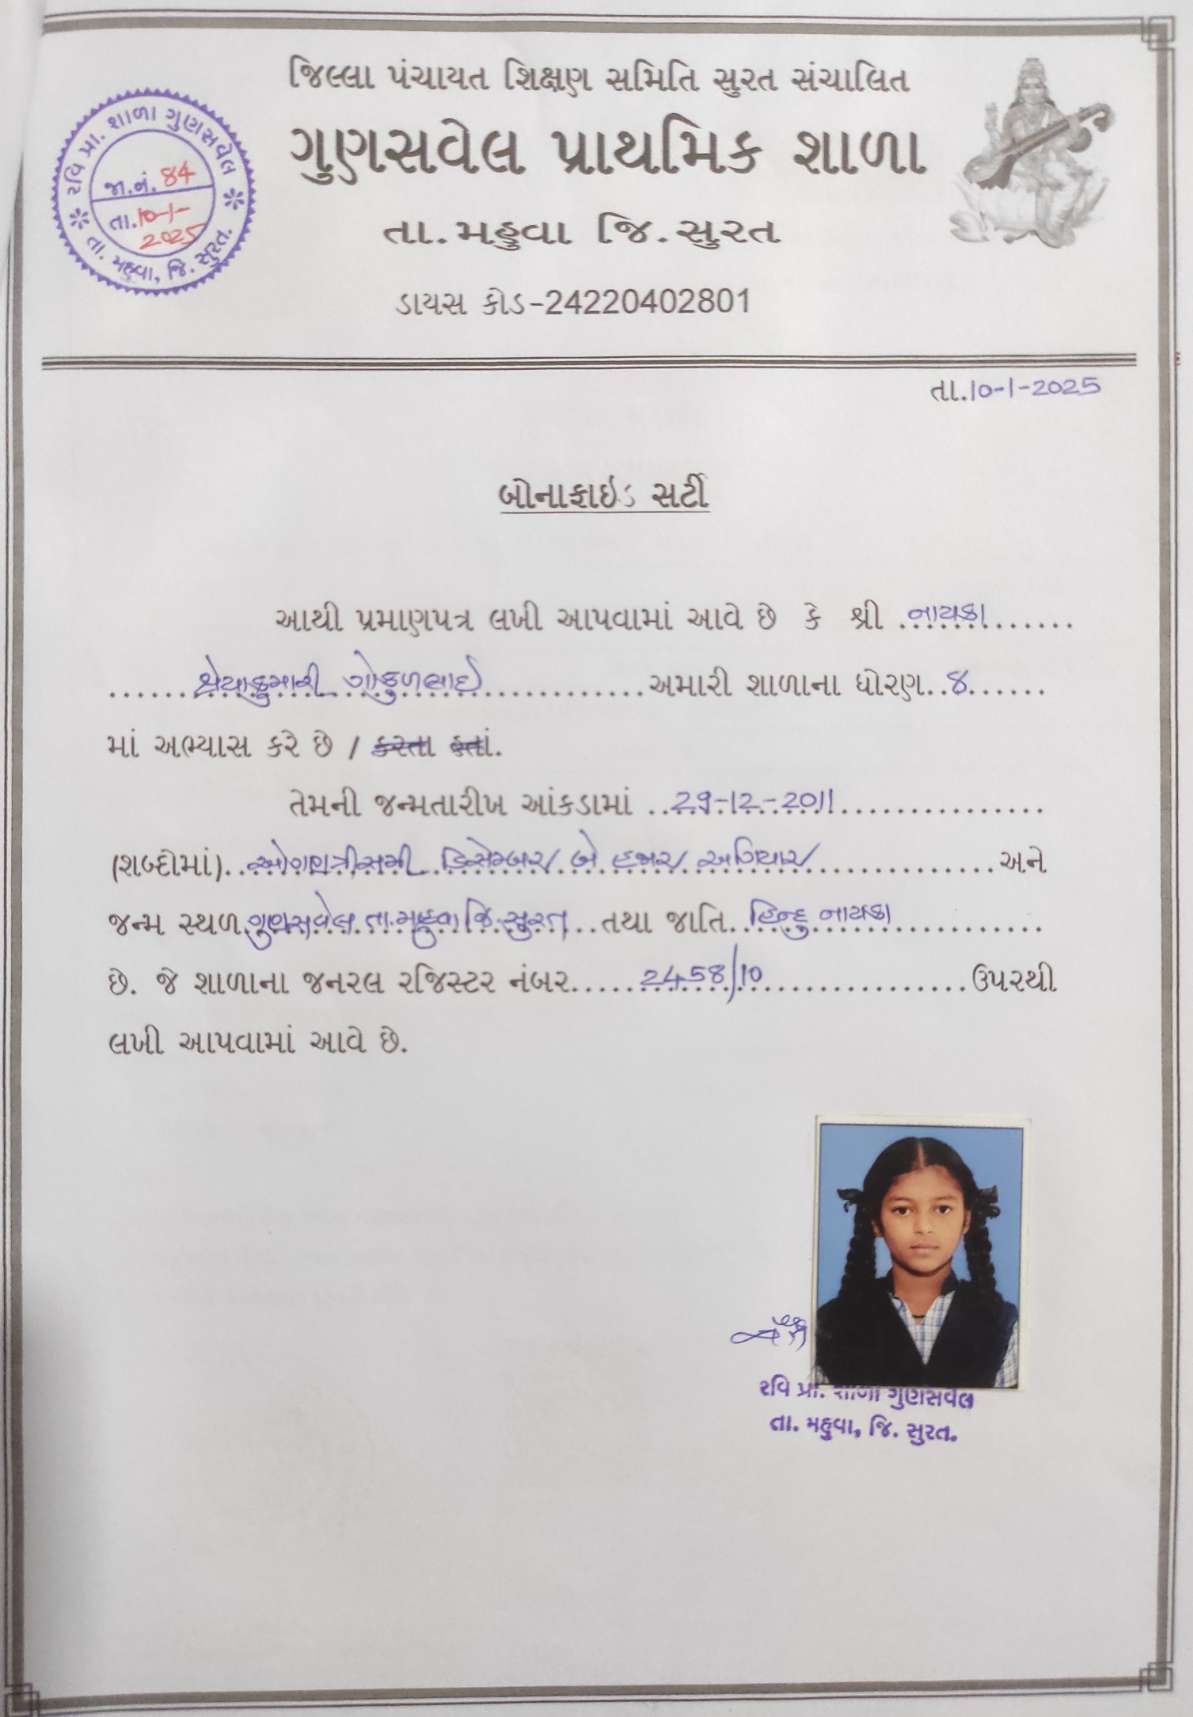 જિલ્લા પંચાયત શિક્ષણ સમિતિ સુરત સંચાલિત
ગુણસવેલ પ્રાથમિક શાળા
તા.મહુવા જિ.સુરત
ડાયસ કોડ-24220402801
રવિ પ્રા. શાળા ગુણસવેલ
જા.નં. 84
તા.10-1-
2025
તા. મહુવા, જિ. સુરત.
તા.10-1-2025
બોનાફાઇડ સર્ટી
આથી પ્રમાણપત્ર લખી આપવામાં આવે છે કે શ્રી .નાયકા......
......શ્રેયાકુમારી ગોકુળભાઇ............અમારી શાળાના ધોરણ..૪......
માં અભ્યાસ કરે છે / કરતા હતાં.
તેમની જન્મતારીખ આંકડામાં ..29-12-2011...............
(શબ્દોમાં)..ઓગણત્રીસમી ડિસેમ્બર બે હજાર અગિયાર.............અને
જન્મ સ્થળ.ગુણસવેલ તા.મહુવા જિ.સુરત...તથા જાતિ..હિન્દુ નાયકા...........
છે. જે શાળાના જનરલ રજિસ્ટર નંબર.....2458/10...............ઉપરથી
લખી આપવામાં આવે છે.
રવિ પ્રા. શાળા ગુણસવેલ
તા. મહુવા, જિ. સુરત.